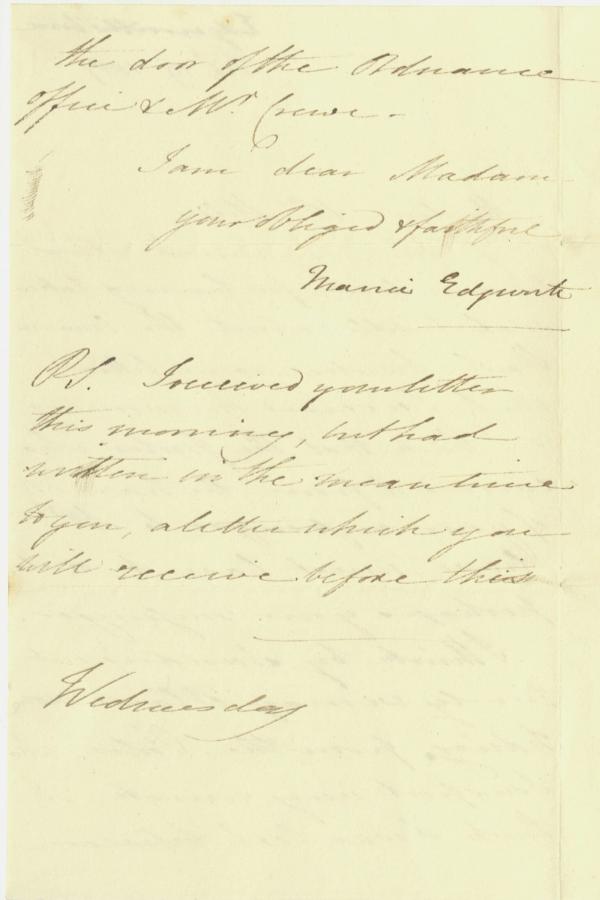 the door of the Ordnance
office & Mr. Crewe.
I am dear Madam
your obliged & faithful
Maria Edgeworth
PS. I received your letter
this morning, but had
written in the meantime
to you, a letter which you
will receive before this
Wednesday